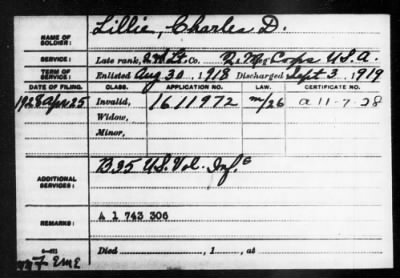 NAME OF SOLDIER: Lillie, Charles D.
SERVICE: Late rank, 2d Lt. Co. Corps U.S.A.
TERM OF SERVICE: Enlisted Aug. 30, 1918 Discharged Sept 3, 1919
DATE OF FILING. CLASS. APPLICATION NO. LAW. CERTIFICATE NO.
1928 Apr 25 Invalid, 1611972 m/26 a 11-7-28
Widow,
Minor,
ADDITIONAL SERVICES: B 35 U.S. Vol. Inf.
REMARKS: A 1 743 306
Died , 1 , at